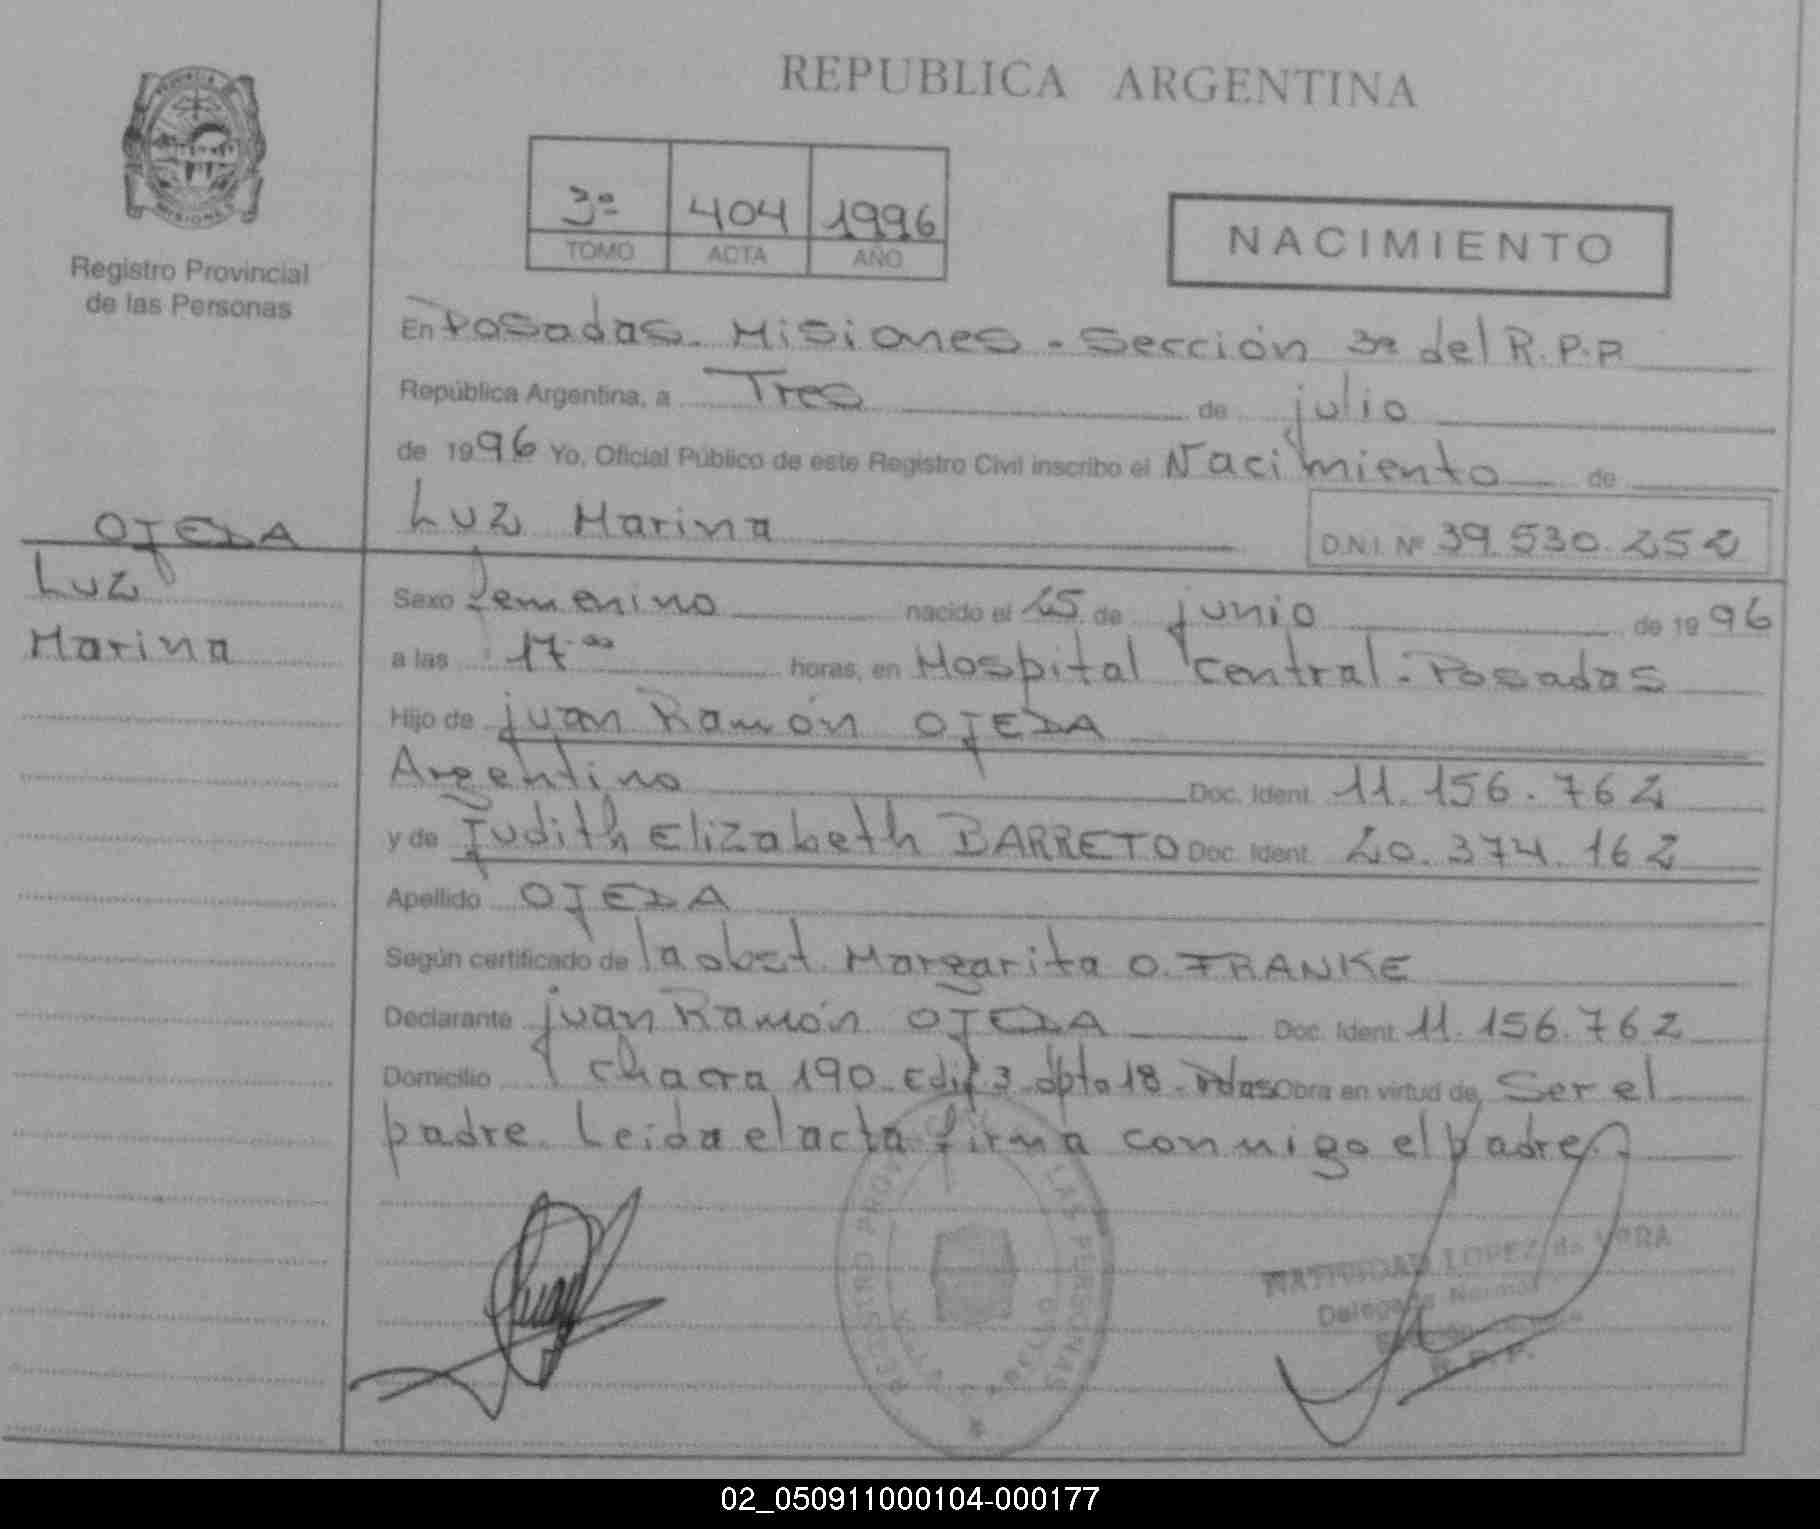 REPUBLICA ARGENTINA
PROVINCIA
MISIONES
Registro Provincial
de las Personas
3º 404 1996
TOMO ACTA AÑO
NACIMIENTO
En Posadas. Misiones - Sección 3ª del R.P.P
República Argentina, a Tres de julio
de 1996 Yo, Oficial Público de este Registro Civil inscribo el Nacimiento de
Luz Marina D.N.I. Nº 39.530.252
OJEDA
Luz
Marina
Sexo femenino nacido el 25 de junio de 1996
a las 17.00 horas, en Hospital Central. Posadas
Hijo de juan Ramón OJEDA
Argentino Doc. Ident. 11.156.762
y de Judith Elizabeth BARRETO Doc. Ident. 20.374.162
Apellido OJEDA
Según certificado de la obst. Margarita O. FRANKE
Declarante juan Ramón OJEDA Doc. Ident. 11.156.762
Domicilio chacra 190 Edif 3 dpto 18 - Pdas Obra en virtud de Ser el
padre. Leida el acta firma conmigo el padre.
REGISTRO LAS PERSONAS
NATIVIDAD LOPEZ de
Delegada Normal
R. P. P.
02_050911000104-000177